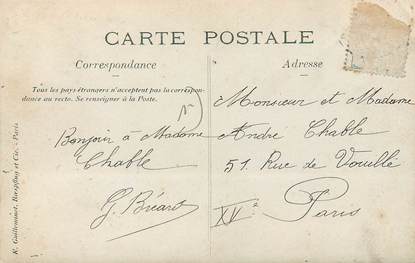 CARTE POSTALE
Correspondance
Tous les pays étrangers n'acceptent pas la correspon-
dance au recto. Se renseigner à la Poste.
Bonjour à Madame
Chable
G. Béart
Adresse
Monsieur et Madame
André Chable
51 Rue de Vouillé
Paris
XVe
R. Guilleminot, Bœspflug et Cie. - Paris